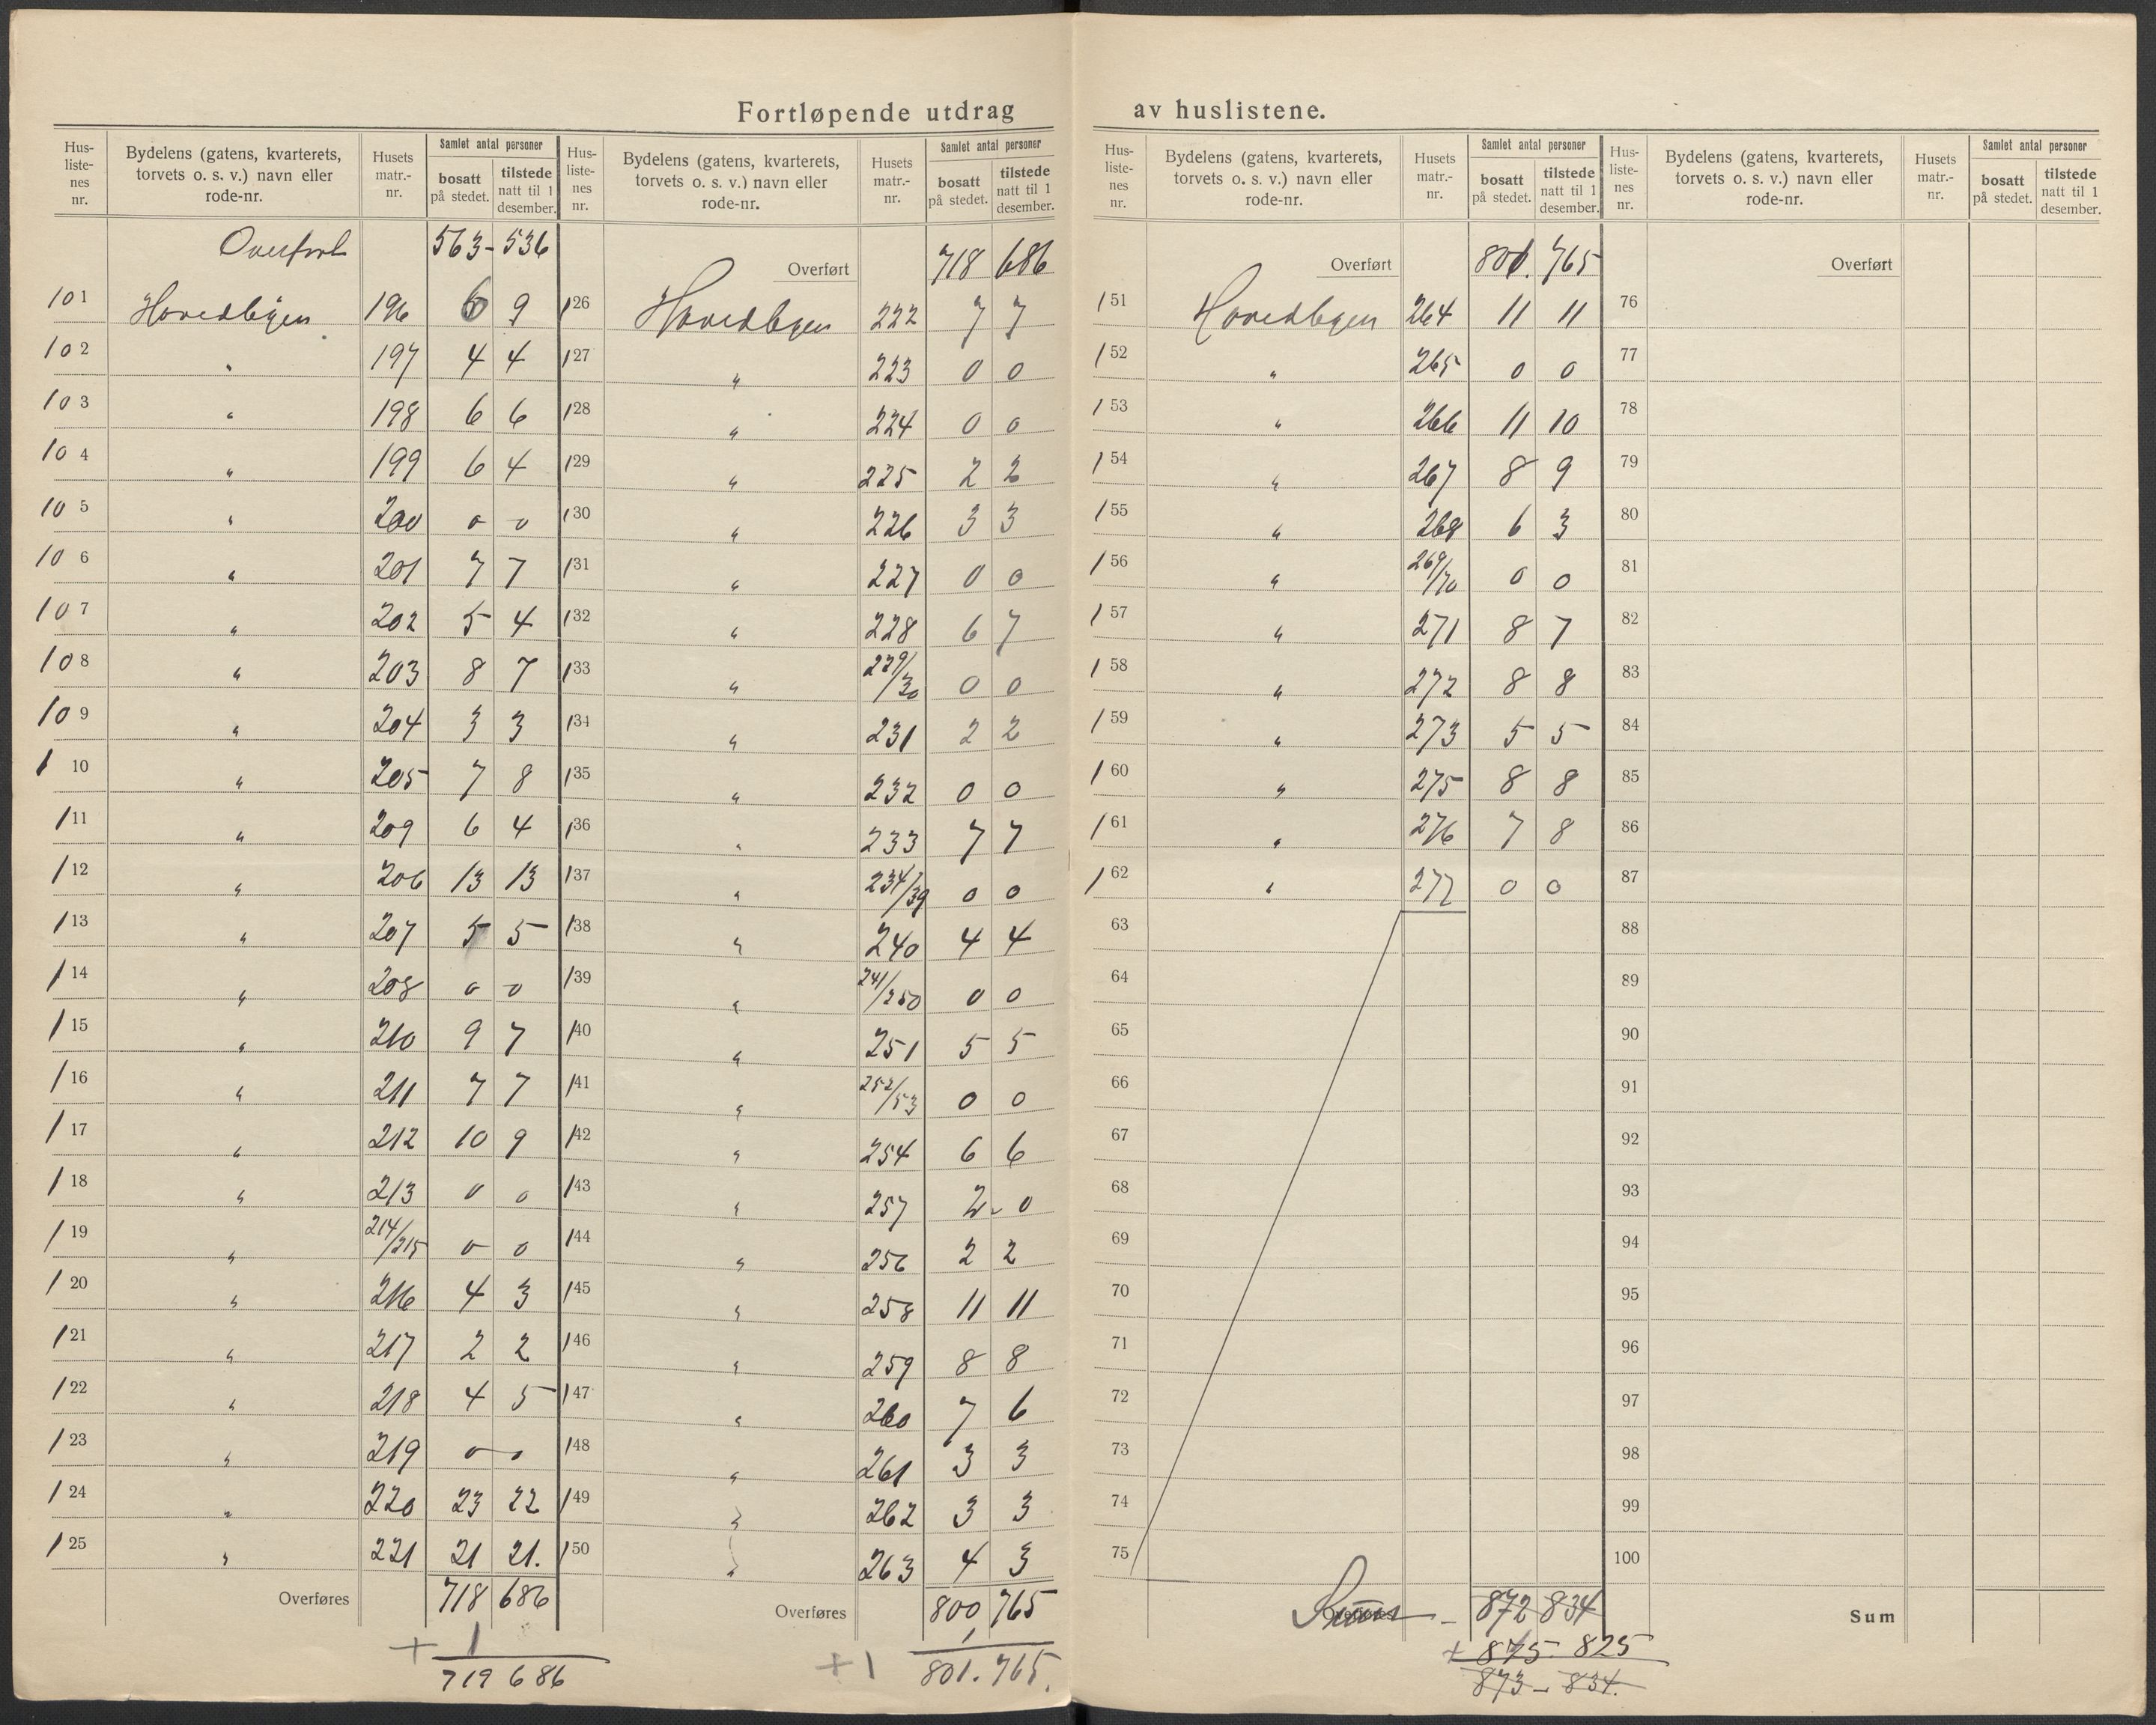 Fortløpende utdrag av huslistene.
Hus-listenes nr. | Bydelens (gatens, kvarterets, torvets o. s. v.) navn eller rode-nr. | Husets matr.-nr. | Samlet antal personer | bosatt på stedet. | tilstede natt til 1 desember.
Overført 563 - 536
101 Hovedbyen 196 6 9
102 " 197 4 4
103 " 198 6 6
104 " 199 6 4
105 " 200 0 0
106 " 201 7 7
107 " 202 5 4
108 " 203 8 7
109 " 204 3 3
110 " 205 7 8
111 " 209 6 4
112 " 206 13 13
113 " 207 5 5
114 " 208 0 0
115 " 210 9 7
116 " 211 7 7
117 " 212 10 9
118 " 213 0 0
119 " 214/215 0 0
120 " 216 4 3
121 " 217 2 2
122 " 218 4 5
123 " 219 0 0
124 " 220 23 22
125 " 221 21 21.
Overføres 718 686
+ 1
719 686
Hus-listenes nr. | Bydelens (gatens, kvarterets, torvets o. s. v.) navn eller rode-nr. | Husets matr.-nr. | Samlet antal personer | bosatt på stedet. | tilstede natt til 1 desember.
Overført 718 686
126 Hovedbyen 222 7 7
127 " 223 0 0
128 " 224 0 0
129 " 225 2 2
130 " 226 3 3
131 " 227 0 0
132 " 228 6 7
133 " 229/30 0 0
134 " 231 2 2
135 " 232 0 0
136 " 233 7 7
137 " 234/39 0 0
138 " 240 4 4
139 " 241/250 0 0
140 " 251 5 5
141 " 252/53 0 0
142 " 254 6 6
143 " 257 2 - 0
144 " 256 2 2
145 " 258 11 11
146 " 259 8 8
147 " 260 7 6
148 " 261 3 3
149 " 262 3 3
150 " 263 4 3
Overføres 800 765
+1 1
801. 765.
Hus-listenes nr. | Bydelens (gatens, kvarterets, torvets o. s. v.) navn eller rode-nr. | Husets matr.-nr. | Samlet antal personer | bosatt på stedet. | tilstede natt til 1 desember.
Overført 801. 765
151 Hovedbyen 264 11 11
152 " 265 0 0
153 " 266 11 10
154 " 267 8 9
155 " 268 6 3
156 " 269/70 0 0
157 " 271 8 7
158 " 272 8 8
159 " 273 5 5
160 " 275 8 8
161 " 276 7 8
162 " 277 0 0
63
64
65
66
67
68
69
70
71
72
73
74
75
Sum - 872 834
+ 875. 825
873 - 834.
Hus-listenes nr. | Bydelens (gatens, kvarterets, torvets o. s. v.) navn eller rode-nr. | Husets matr.-nr. | Samlet antal personer | bosatt på stedet. | tilstede natt til 1 desember.
Overført
76
77
78
79
80
81
82
83
84
85
86
87
88
89
90
91
92
93
94
95
96
97
98
99
100
Sum